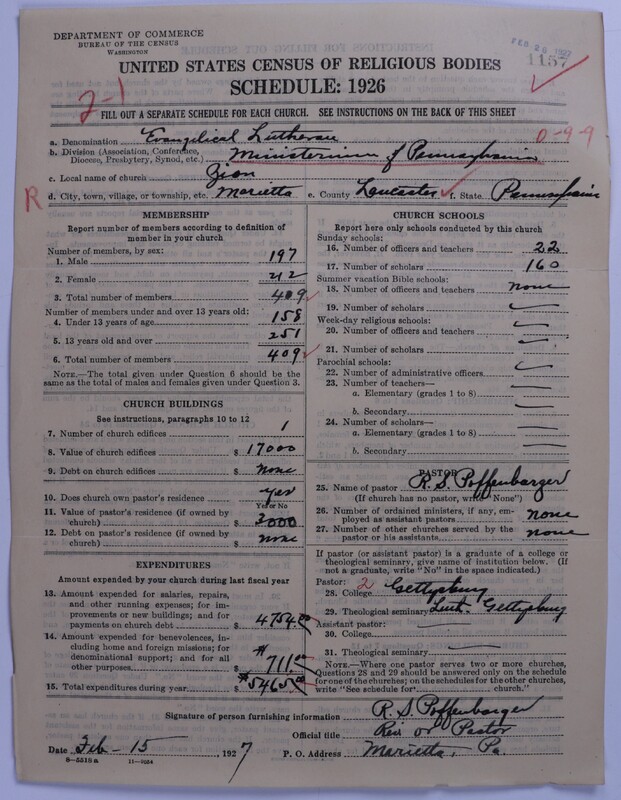 DEPARTMENT OF COMMERCE
BUREAU OF THE CENSUS
WASHINGTON
FEB 26 1927
1157
UNITED STATES CENSUS OF RELIGIOUS BODIES
SCHEDULE: 1926
2-1
FILL OUT A SEPARATE SCHEDULE FOR EACH CHURCH. SEE INSTRUCTIONS ON THE BACK OF THIS SHEET
a. Denomination Evangelical Lutheran 0-9-9
b. Division (Association, Conference, Diocese, Presbytery, Synod, etc.) Ministerium of Pennsylvania
c. Local name of church Zion
R d. City, town, village, or township, etc. Marietta e. County Lancaster f. State Pennsylvania
MEMBERSHIP
Report number of members according to definition of
member in your church
Number of members, by sex:
1. Male 197
2. Female 212
3. Total number of members 409
Number of members under and over 13 years old:
4. Under 13 years of age 158
5. 13 years old and over 251
6. Total number of members 409
NOTE.—The total given under Question 6 should be
same as the total of males and females given under Question 3.
CHURCH BUILDINGS
See instructions, paragraphs 10 to 12
7. Number of church edifices 1
8. Value of church edifices $ 17000
9. Debt on church edifices $ none
10. Does church own pastor's residence yes
Yes or No
11. Value of pastor's residence (if owned by
church) $ 3000
12. Debt on pastor's residence (if owned by
church) $ none
EXPENDITURES
Amount expended by your church during last fiscal year
13. Amount expended for salaries, repairs,
and other running expenses; for im-
provements or new buildings; and for
payments on church debt $ 4754.00
14. Amount expended for benevolences, in-
cluding home and foreign missions; for
denominational support; and for all
other purposes $ 711.00
15. Total expenditures during year $ 5465.00
CHURCH SCHOOLS
Report here only schools conducted by this church
Sunday schools:
16. Number of officers and teachers 22
17. Number of scholars 160
Summer vacation Bible schools:
18. Number of officers and teachers none
19. Number of scholars —
Week-day religious schools:
20. Number of officers and teachers —
21. Number of scholars —
Parochial schools:
22. Number of administrative officers —
23. Number of teachers—
a. Elementary (grades 1 to 8) —
b. Secondary —
24. Number of scholars—
a. Elementary (grades 1 to 8) —
b. Secondary —
PASTOR
25. Name of pastor R. S. Poffenbarger
(If church has no pastor, write "None")
26. Number of ordained ministers, if any, em-
ployed as assistant pastors none
27. Number of other churches served by the
pastor or his assistants none
If pastor (or assistant pastor) is a graduate of a college or
theological seminary, give name of institution below. (If
not a graduate, write "No" in the space indicated.)
Pastor: 2
28. College Gettysburg
29. Theological seminary Luth. Gettysburg
Assistant pastor:
30. College —
31. Theological seminary —
NOTE.—Where one pastor serves two or more churches,
Questions 28 and 29 should be answered only on the schedule
for one of the churches; on the schedules for the other churches,
write "See schedule for church."
Signature of person furnishing information R. S. Poffenbarger
Official title Rev. or Pastor
Date Feb - 15, 1927 P. O. Address Marietta, Pa.
8—5519a 11—9254